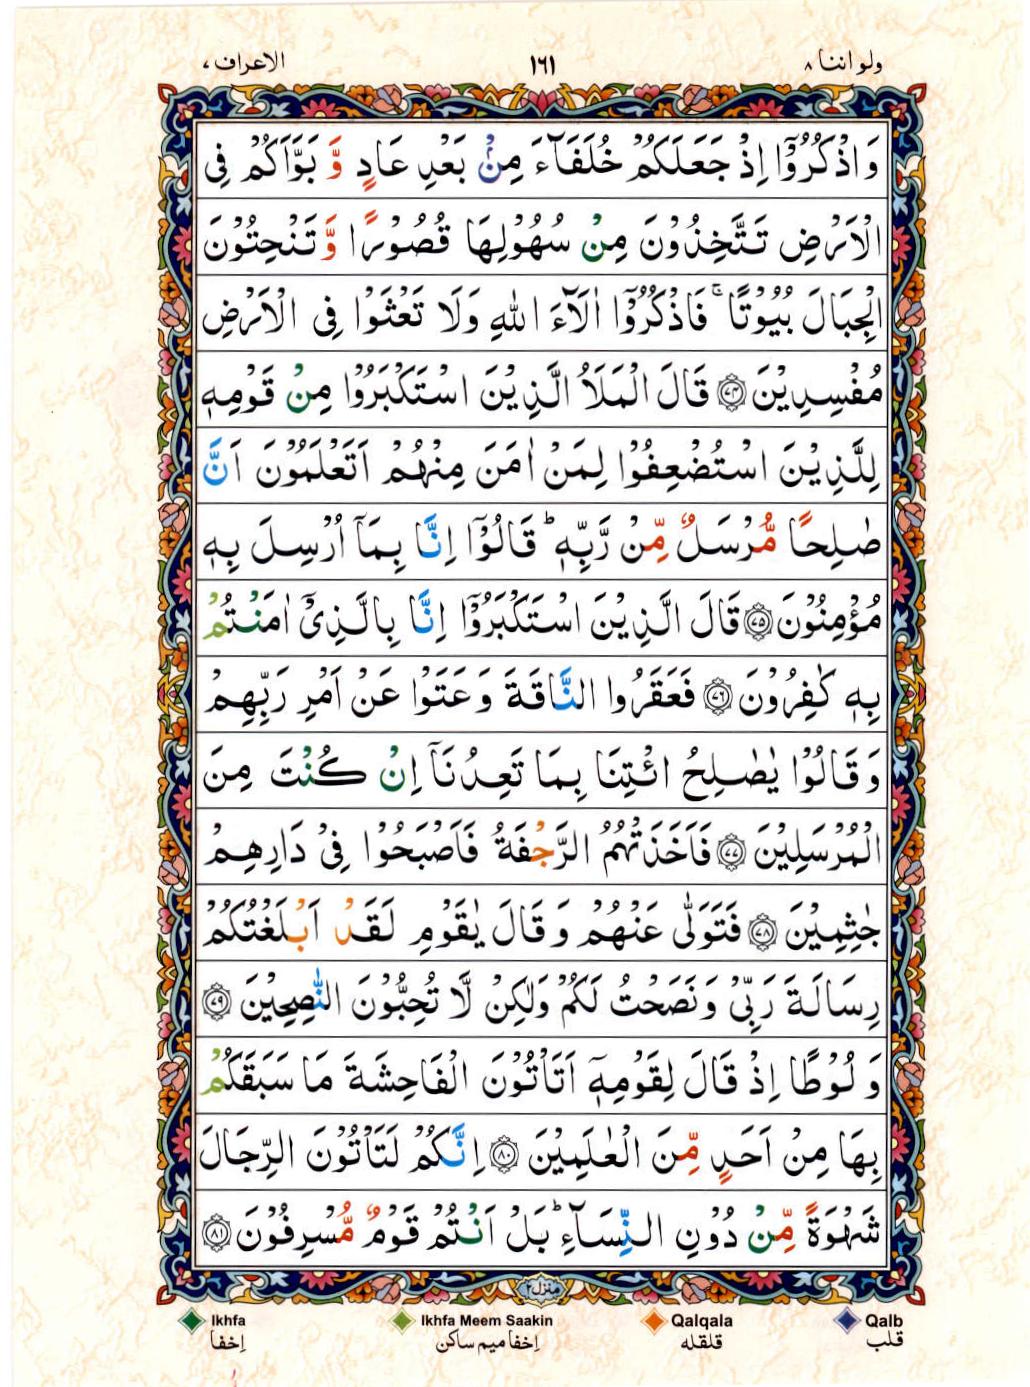 ولو اننا ٨
١٦١
الاعراف ٧
وَاذْكُرُوْۤا اِذْ جَعَلَكُمْ خُلَفَآءَ مِنْۢ بَعْدِ عَادٍ وَّ بَوَّاَكُمْ فِی
الْاَرْضِ تَتَّخِذُوْنَ مِنْ سُهُوْلِهَا قُصُوْرًا وَّتَنْحِتُوْنَ
الْجِبَالَ بُیُوْتًا ۚ فَاذْكُرُوْۤا اٰلَآءَ اللّٰهِ وَلَا تَعْثَوْا فِی الْاَرْضِ
مُفْسِدِیْنَ ﴿۷۴﴾ قَالَ الْمَلَاُ الَّذِیْنَ اسْتَكْبَرُوْا مِنْ قَوْمِهٖ
لِلَّذِیْنَ اسْتُضْعِفُوْا لِمَنْ اٰمَنَ مِنْهُمْ اَتَعْلَمُوْنَ اَنَّ
صٰلِحًا مُّرْسَلٌ مِّنْ رَّبِّهٖ ؕ قَالُوْۤا اِنَّا بِمَاۤ اُرْسِلَ بِهٖ
مُؤْمِنُوْنَ ﴿۷۵﴾ قَالَ الَّذِیْنَ اسْتَكْبَرُوْۤا اِنَّا بِالَّذِیْۤ اٰمَنْتُمْ
بِهٖ كٰفِرُوْنَ ﴿۷۶﴾ فَعَقَرُوا النَّاقَةَ وَعَتَوْا عَنْ اَمْرِ رَبِّهِمْ
وَقَالُوْا یٰصٰلِحُ ائْتِنَا بِمَا تَعِدُنَاۤ اِنْ كُنْتَ مِنَ
الْمُرْسَلِیْنَ ﴿۷۷﴾ فَاَخَذَتْهُمُ الرَّجْفَةُ فَاَصْبَحُوْا فِیْ دَارِهِمْ
جٰثِمِیْنَ ﴿۷۸﴾ فَتَوَلّٰی عَنْهُمْ وَقَالَ یٰقَوْمِ لَقَدْ اَبْلَغْتُكُمْ
رِسَالَةَ رَبِّیْ وَنَصَحْتُ لَكُمْ وَلٰكِنْ لَّا تُحِبُّوْنَ النّٰصِحِیْنَ ﴿۷۹﴾
وَ لُوْطًا اِذْ قَالَ لِقَوْمِهٖۤ اَتَاْتُوْنَ الْفَاحِشَةَ مَا سَبَقَكُمْ
بِهَا مِنْ اَحَدٍ مِّنَ الْعٰلَمِیْنَ ﴿۸۰﴾ اِنَّكُمْ لَتَاْتُوْنَ الرِّجَالَ
شَهْوَةً مِّنْ دُوْنِ النِّسَآءِ ؕ بَلْ اَنْتُمْ قَوْمٌ مُّسْرِفُوْنَ ﴿۸۱﴾
منزل ۲
Ikhfa Ikhfa Meem Saakin Qalqala Qalb
قلب قلقله اِخفا میم ساکن اِخفا